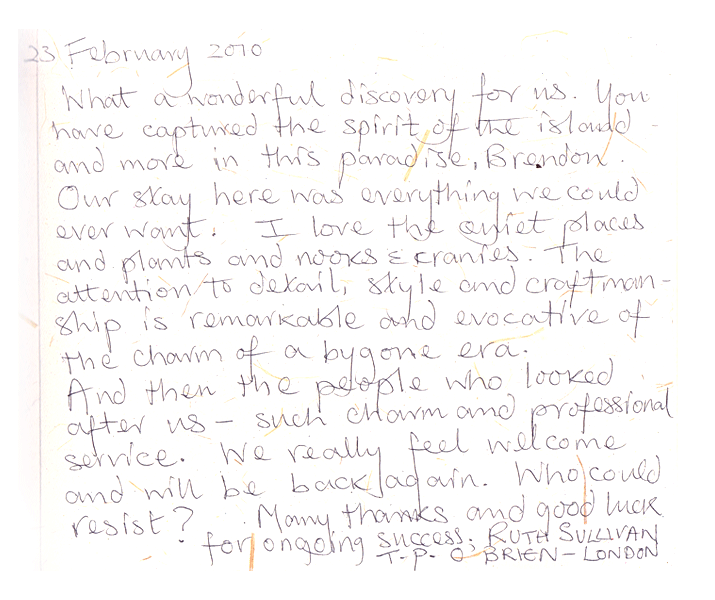 23 February 2010
What a wonderful discovery for us. You
have captured the spirit of the island -
and more in this paradise, Brendon.
Our stay here was everything we could
ever want. I love the quiet places
and plants and nooks & cranies. The
attention to detail, style and craftman-
ship is remarkable and evocative of
the charm of a bygone era.
And then the people who looked
after us - such charm and professional
service. We really feel welcome
and will be back again. Who could
resist? Many thanks and good luck
for ongoing success; RUTH SULLIVAN
T-P- O'BRIEN - LONDON